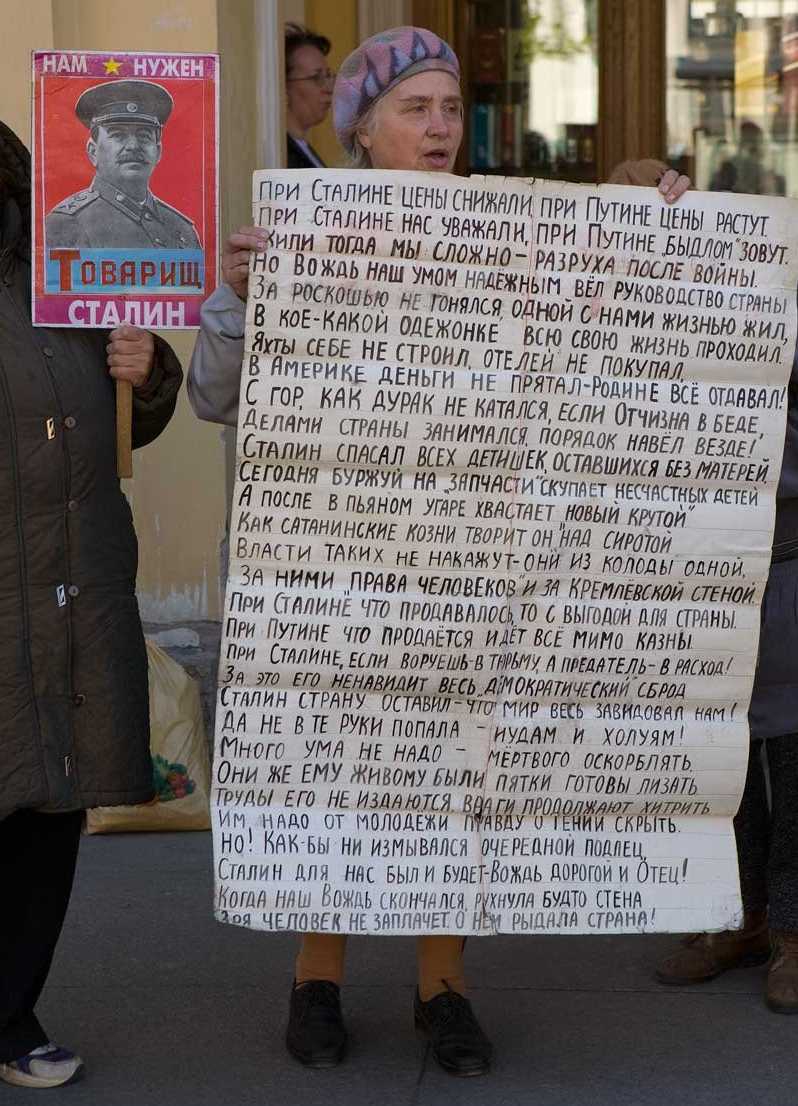 НАМ НУЖЕН
ТОВАРИЩ
СТАЛИН
ПРИ СТАЛИНЕ ЦЕНЫ СНИЖАЛИ, ПРИ ПУТИНЕ ЦЕНЫ РАСТУТ.
ПРИ СТАЛИНЕ НАС УВАЖАЛИ, ПРИ ПУТИНЕ „БЫДЛОМ" ЗОВУТ.
ЖИЛИ ТОГДА МЫ СЛОЖНО – РАЗРУХА ПОСЛЕ ВОЙНЫ.
НО ВОЖДЬ НАШ УМОМ НАДЁЖНЫМ ВЁЛ РУКОВОДСТВО СТРАНЫ
ЗА РОСКОШЬЮ НЕ ГОНЯЛСЯ, ОДНОЙ С НАМИ ЖИЗНЬЮ ЖИЛ,
В КОЕ-КАКОЙ ОДЕЖОНКЕ ВСЮ СВОЮ ЖИЗНЬ ПРОХОДИЛ.
ЯХТЫ СЕБЕ НЕ СТРОИЛ, ОТЕЛЕЙ НЕ ПОКУПАЛ,
В АМЕРИКЕ ДЕНЬГИ НЕ ПРЯТАЛ-РОДИНЕ ВСЁ ОТДАВАЛ!
С ГОР, КАК ДУРАК НЕ КАТАЛСЯ, ЕСЛИ ОТЧИЗНА В БЕДЕ,
ДЕЛАМИ СТРАНЫ ЗАНИМАЛСЯ, ПОРЯДОК НАВЁЛ ВЕЗДЕ!
СТАЛИН СПАСАЛ ВСЕХ ДЕТИШЕК, ОСТАВШИХСЯ БЕЗ МАТЕРЕЙ,
СЕГОДНЯ БУРЖУЙ НА „ЗАПЧАСТИ" СКУПАЕТ НЕСЧАСТНЫХ ДЕТЕЙ
А ПОСЛЕ В ПЬЯНОМ УГАРЕ ХВАСТАЕТ „НОВЫЙ КРУТОЙ"
КАК САТАНИНСКИЕ КОЗНИ ТВОРИТ ОН НАД СИРОТОЙ
ВЛАСТИ ТАКИХ НЕ НАКАЖУТ-ОНИ ИЗ КОЛОДЫ ОДНОЙ,
ЗА НИМИ „ПРАВА ЧЕЛОВЕКОВ" И ЗА КРЕМЛЁВСКОЙ СТЕНОЙ.
ПРИ СТАЛИНЕ ЧТО ПРОДАВАЛОСЬ, ТО С ВЫГОДОЙ ДЛЯ СТРАНЫ.
ПРИ ПУТИНЕ ЧТО ПРОДАЁТСЯ ИДЁТ ВСЁ МИМО КАЗНЫ.
ПРИ СТАЛИНЕ, ЕСЛИ ВОРУЕШЬ-В ТЮРЬМУ, А ПРЕДАТЕЛЬ-В РАСХОД!
ЗА ЭТО ЕГО НЕНАВИДИТ ВЕСЬ „ДЕМОКРАТИЧЕСКИЙ" СБРОД
СТАЛИН СТРАНУ ОСТАВИЛ-ЧТО МИР ВЕСЬ ЗАВИДОВАЛ НАМ!
ДА НЕ В ТЕ РУКИ ПОПАЛА – ИУДАМ И ХОЛУЯМ!
МНОГО УМА НЕ НАДО – МЁРТВОГО ОСКОРБЛЯТЬ,
ОНИ ЖЕ ЕМУ ЖИВОМУ БЫЛИ ПЯТКИ ГОТОВЫ ЛИЗАТЬ
ТРУДЫ ЕГО НЕ ИЗДАЮТСЯ, ВРАГИ ПРОДОЛЖАЮТ ХИТРИТЬ
ИМ НАДО ОТ МОЛОДЕЖИ ПРАВДУ О ГЕНИИ СКРЫТЬ.
НО! КАК-БЫ НИ ИЗМЫВАЛСЯ ОЧЕРЕДНОЙ ПОДЛЕЦ,
СТАЛИН ДЛЯ НАС БЫЛ И БУДЕТ-ВОЖДЬ ДОРОГОЙ И ОТЕЦ!
КОГДА НАШ ВОЖДЬ СКОНЧАЛСЯ, РУХНУЛА БУДТО СТЕНА
ЗРЯ ЧЕЛОВЕК НЕ ЗАПЛАЧЕТ, О НЁМ РЫДАЛА СТРАНА!